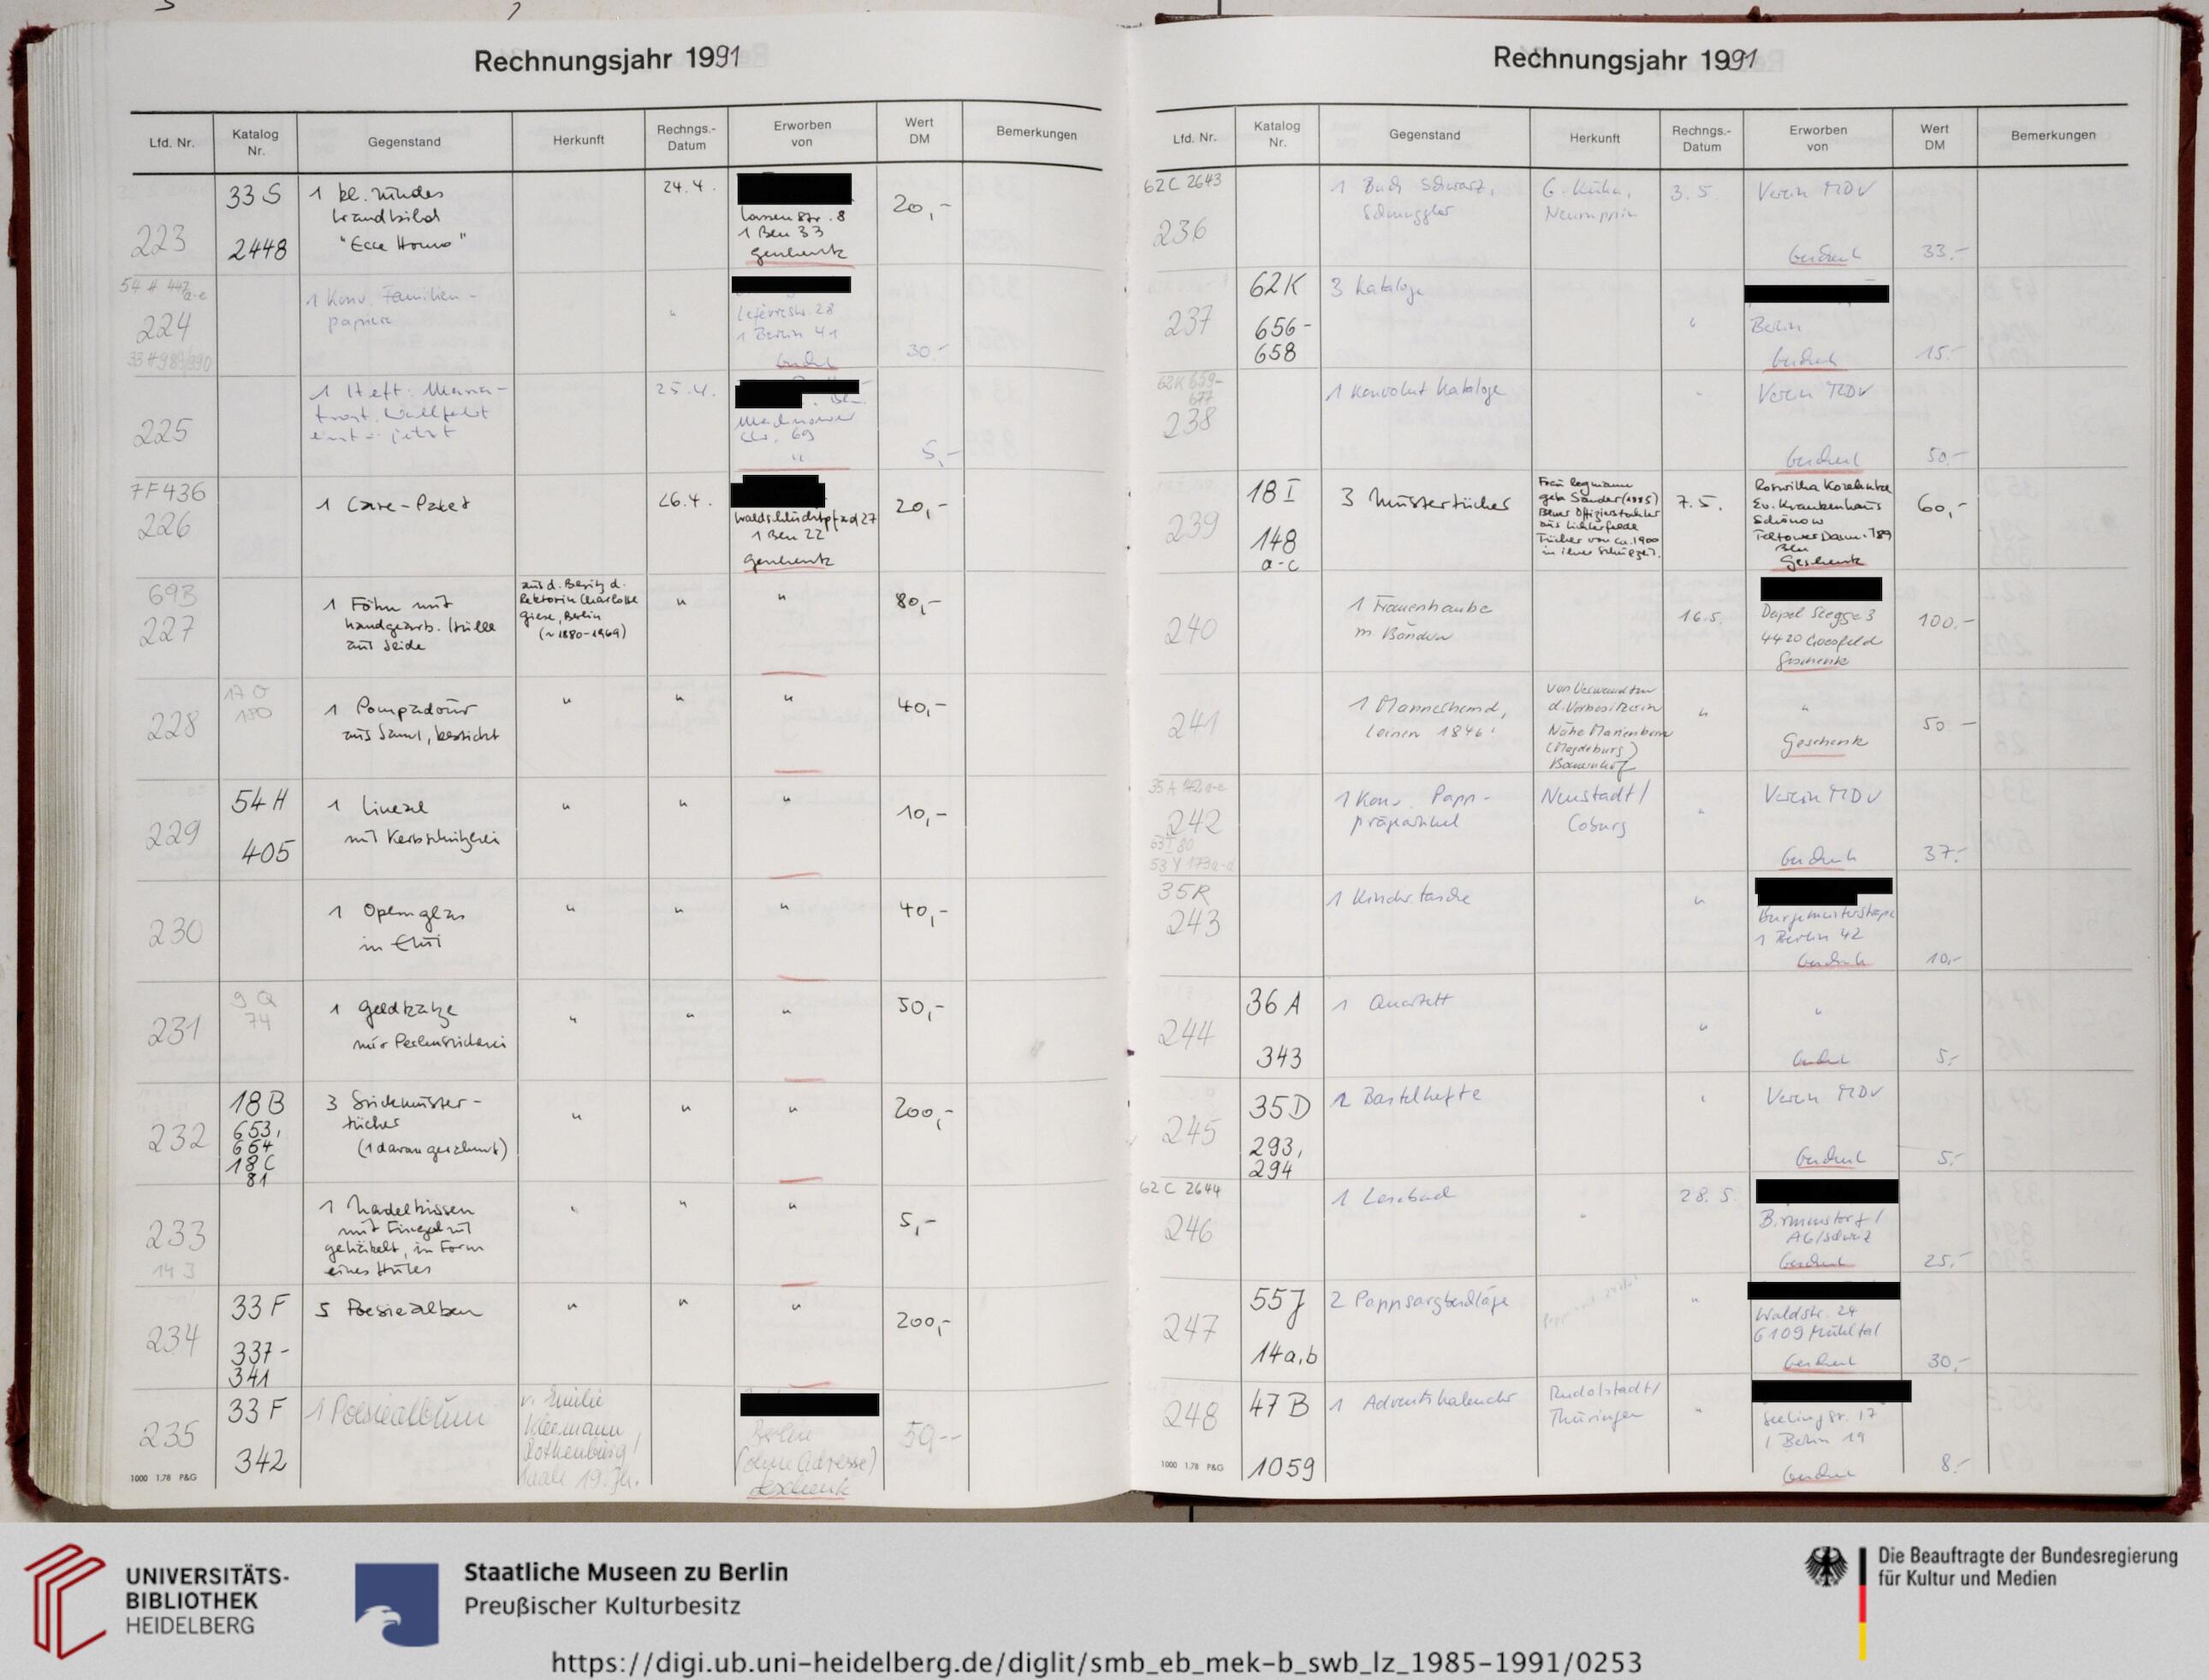 Rechnungsjahr 1991
Lfd. Nr. Katalog Nr. Gegenstand Herkunft Rechngs.-Datum Erworben von Wert DM Bemerkungen
223 33 S 2448 1 kl. rundes Wandbild "Ecce Homo" 24.4. Lassenstr. 8 1 Bln 33 Geschenk 20,-
54 H 447 a-e 224 33 H 989/990 1 Konv. Familien-papiere " Lefèvrestr. 28 1 Berlin 41 Geschenk 30.-
225 1 Heft: Maria-trost. Wallfahrt einst - jetzt 25.4. Machnower Str. 69 " 5,-
7F436 226 1 Care-Paket 26.4. Waldschluchtpfad 27 1 Bln 22 Geschenk 20,-
69B 227 1 Föhn mit handgearb. Hülle aus Seide aus d. Besitz d. Rektorin Charlotte Giese, Berlin (~1880-1969) " " 80,-
228 17 O 190 1 Pompadour aus Samt, bestickt " " " 40,-
229 54 H 405 1 Lineal mit Kerbschnitzerei " " " 10,-
230 1 Opernglas in Etui " " " 40,-
231 9 Q 74 1 Geldkatze mit Perlenstickerei " " " 50,-
232 18B 653, 654 18C 81 3 Stickmuster-tücher (1 davon gerahmt) " " " 200,-
233 14 J 1 Nadelkissen mit Fingerhut gehäkelt, in Form eines Hutes " " " 5,-
234 33 F 337-341 5 Poesiealben " " " 200,-
235 33 F 342 1 Poesiealbum v. Emilie Kleemann Rothenburg/Saale 19. Jh. Berlin (ohne Adresse) Geschenk 50--
1000 1.78 P&G
Rechnungsjahr 1991
Lfd. Nr. Katalog Nr. Gegenstand Herkunft Rechngs.-Datum Erworben von Wert DM Bemerkungen
62C 2643 236 1 Buch Schwarz, Schmuggler G. Kühn, Neuruppin 3.5. Verein MDV Geschenk 33.-
237 62K 656-658 3 Kataloge " Berlin Geschenk 15.-
62K 659-677 238 1 Konvolut Kataloge " Verein MDV Geschenk 50.-
239 18 I 148 a-c 3 Mustertücher Frau geb. Sander (1885) aus Lichterfelde Tücher von ca. 1900 in ihrer Schulzeit. 7.5. Roswitha Ev. Krankenhaus Schönow Teltower Damm 189 Bln Geschenk 60,-
240 1 Frauenhaube m. Bändern 16.5. 4420 Coesfeld Geschenk 100.-
241 1 Männerhemd, Leinen 1846 von Verwandten d. Vorbesitzerin Nähe Marienborn (Magdeburg) Bauernhof " " Geschenk 50 -
35 A 142 a-e 242 53 I 80 53 Y 173a-d 1 Konv. Papp-präpartikel Neustadt/ Coburg " Verein MDV Geschenk 37.-
35R 243 1 Kindertasche " Burgemeisterstrasse 1 Berlin 42 Geschenk 10,-
244 36 A 343 1 Quartett " " Geschenk 5,-
245 35D 293, 294 2 Bastelhefte " Verein MDV Geschenk 5.-
62C 2644 246 1 Lesebuch " 28.5. Birmenstorf/ AG/Schweiz Geschenk 25,-
247 55J 14a,b 2 Pappsargbeschläge " Waldstr. 24 6109 Mühltal Geschenk 30,-
248 47 B 1059 1 Adventskalender Rudolstadt/ Thüringen " Seelingstr. 17 1 Berlin 19 Geschenk 8.-
1000 1.78 P&G
UNIVERSITÄTS-
BIBLIOTHEK
HEIDELBERG
Staatliche Museen zu Berlin
Preußischer Kulturbesitz
Die Beauftragte der Bundesregierung
für Kultur und Medien
https://digi.ub.uni-heidelberg.de/diglit/smb_eb_mek-b_swb_lz_1985-1991/0253